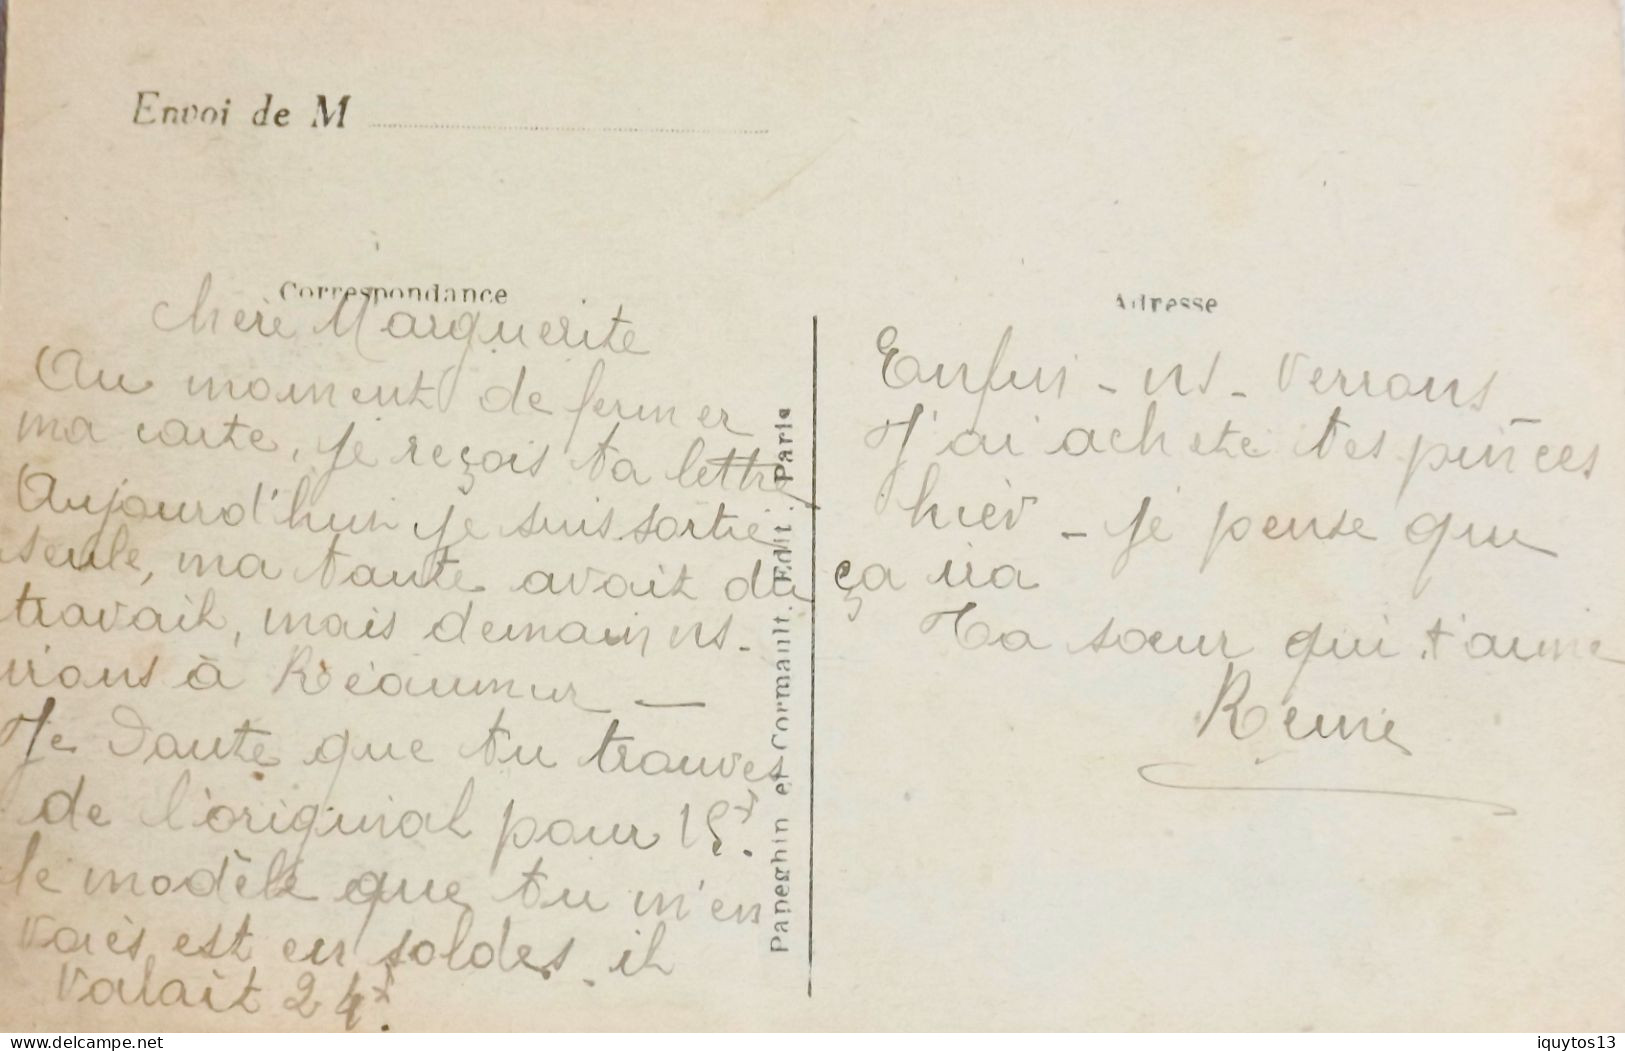 Envoi de M
Correspondance
Chère Marguerite
Au moment de fermer
ma carte, je reçois ta lettre
Aujourd'hui je suis sortie
seule, ma tante avait du
travail, mais demain ns.
irons à Réaumur —
Je doute que tu trouves
de l'original pour 15f.
le modèle que tu m'en
voies est en soldes. il
valait 24f.
Papeghin et Cormault. Edit. Paris
Adresse
Enfin - ns - verrons -
J'ai acheté tes pinces
hier - je pense que
ça ira
Ta sœur qui t'aime
Renée
www.delcampe.net
iquytos13